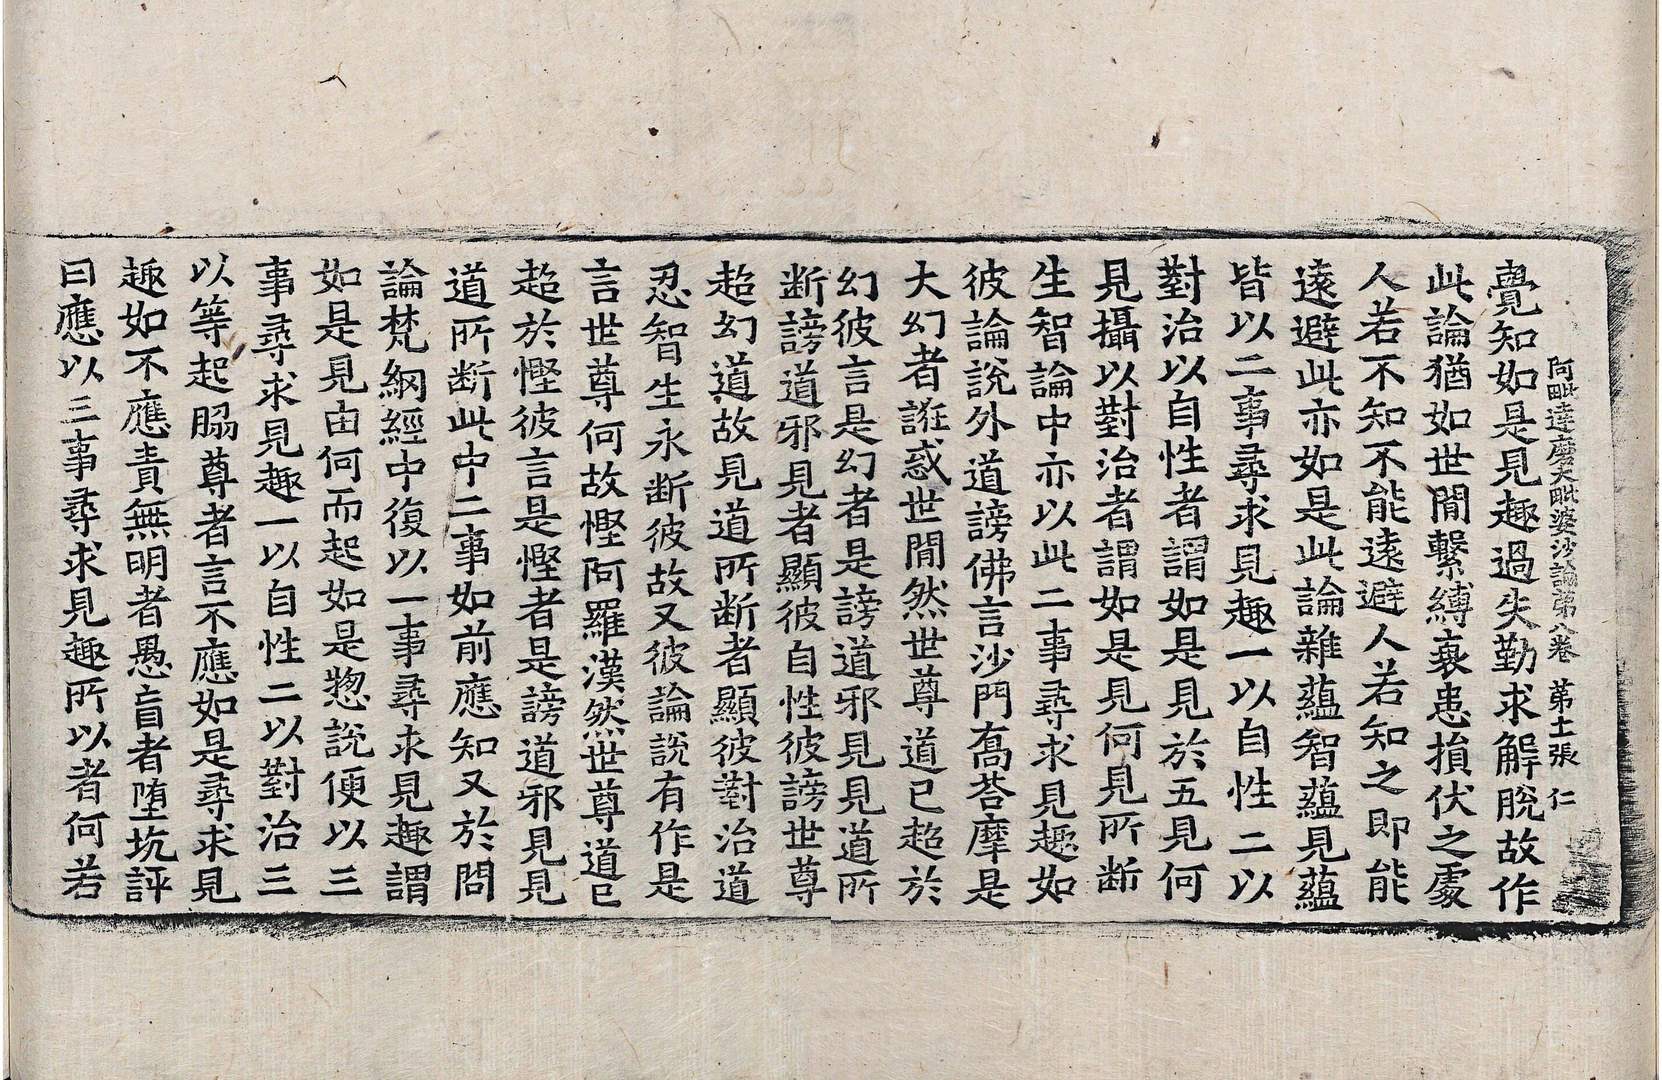 阿毗達磨大毗婆沙論第八卷 第十一張 仁
覺知如是見趣過失勤求解脫故作
此論猶如世閒繫縛衰患損伏之處
人若不知不能遠避人若知之即能
遠避此亦如是此論雜蘊智蘊見蘊
皆以二事尋求見趣一以自性二以
對治以自性者謂如是見於五見何
見攝以對治者謂如是見何見所斷
生智論中亦以此二事尋求見趣如
彼論說外道謗佛言沙門喬荅摩是
大幻者誑惑世閒然世尊道已超於
幻彼言是幻者是謗道邪見見道所
斷謗道邪見者顯彼自性彼謗世尊
超幻道故見道所斷者顯彼對治道
忍智生永斷彼故又彼論說有作是
言世尊何故慳阿羅漢然世尊道已
超於慳彼言是慳者是謗道邪見見
道所斷此中二事如前應知又於問
論梵網經中復以一事尋求見趣謂
如是見由何而起如是惣說便以三
事尋求見趣一以自性二以對治三
以等起脇尊者言不應如是尋求見
趣如不應責無明者愚盲者墮坑評
曰應以三事尋求見趣所以者何若